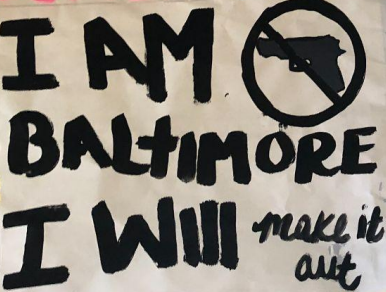 I AM
BALtIMORE
I WIll make it
out